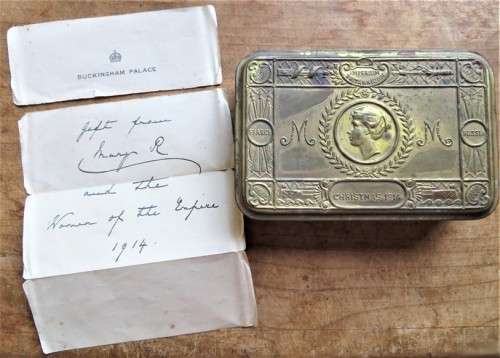 BUCKINGHAM PALACE
Gift from
Mary R
and the
Women of the Empire
1914.
IMPERIUM
BRITANNICUM
FRANCE
M
M
RUSSIA
CHRISTMAS 1914